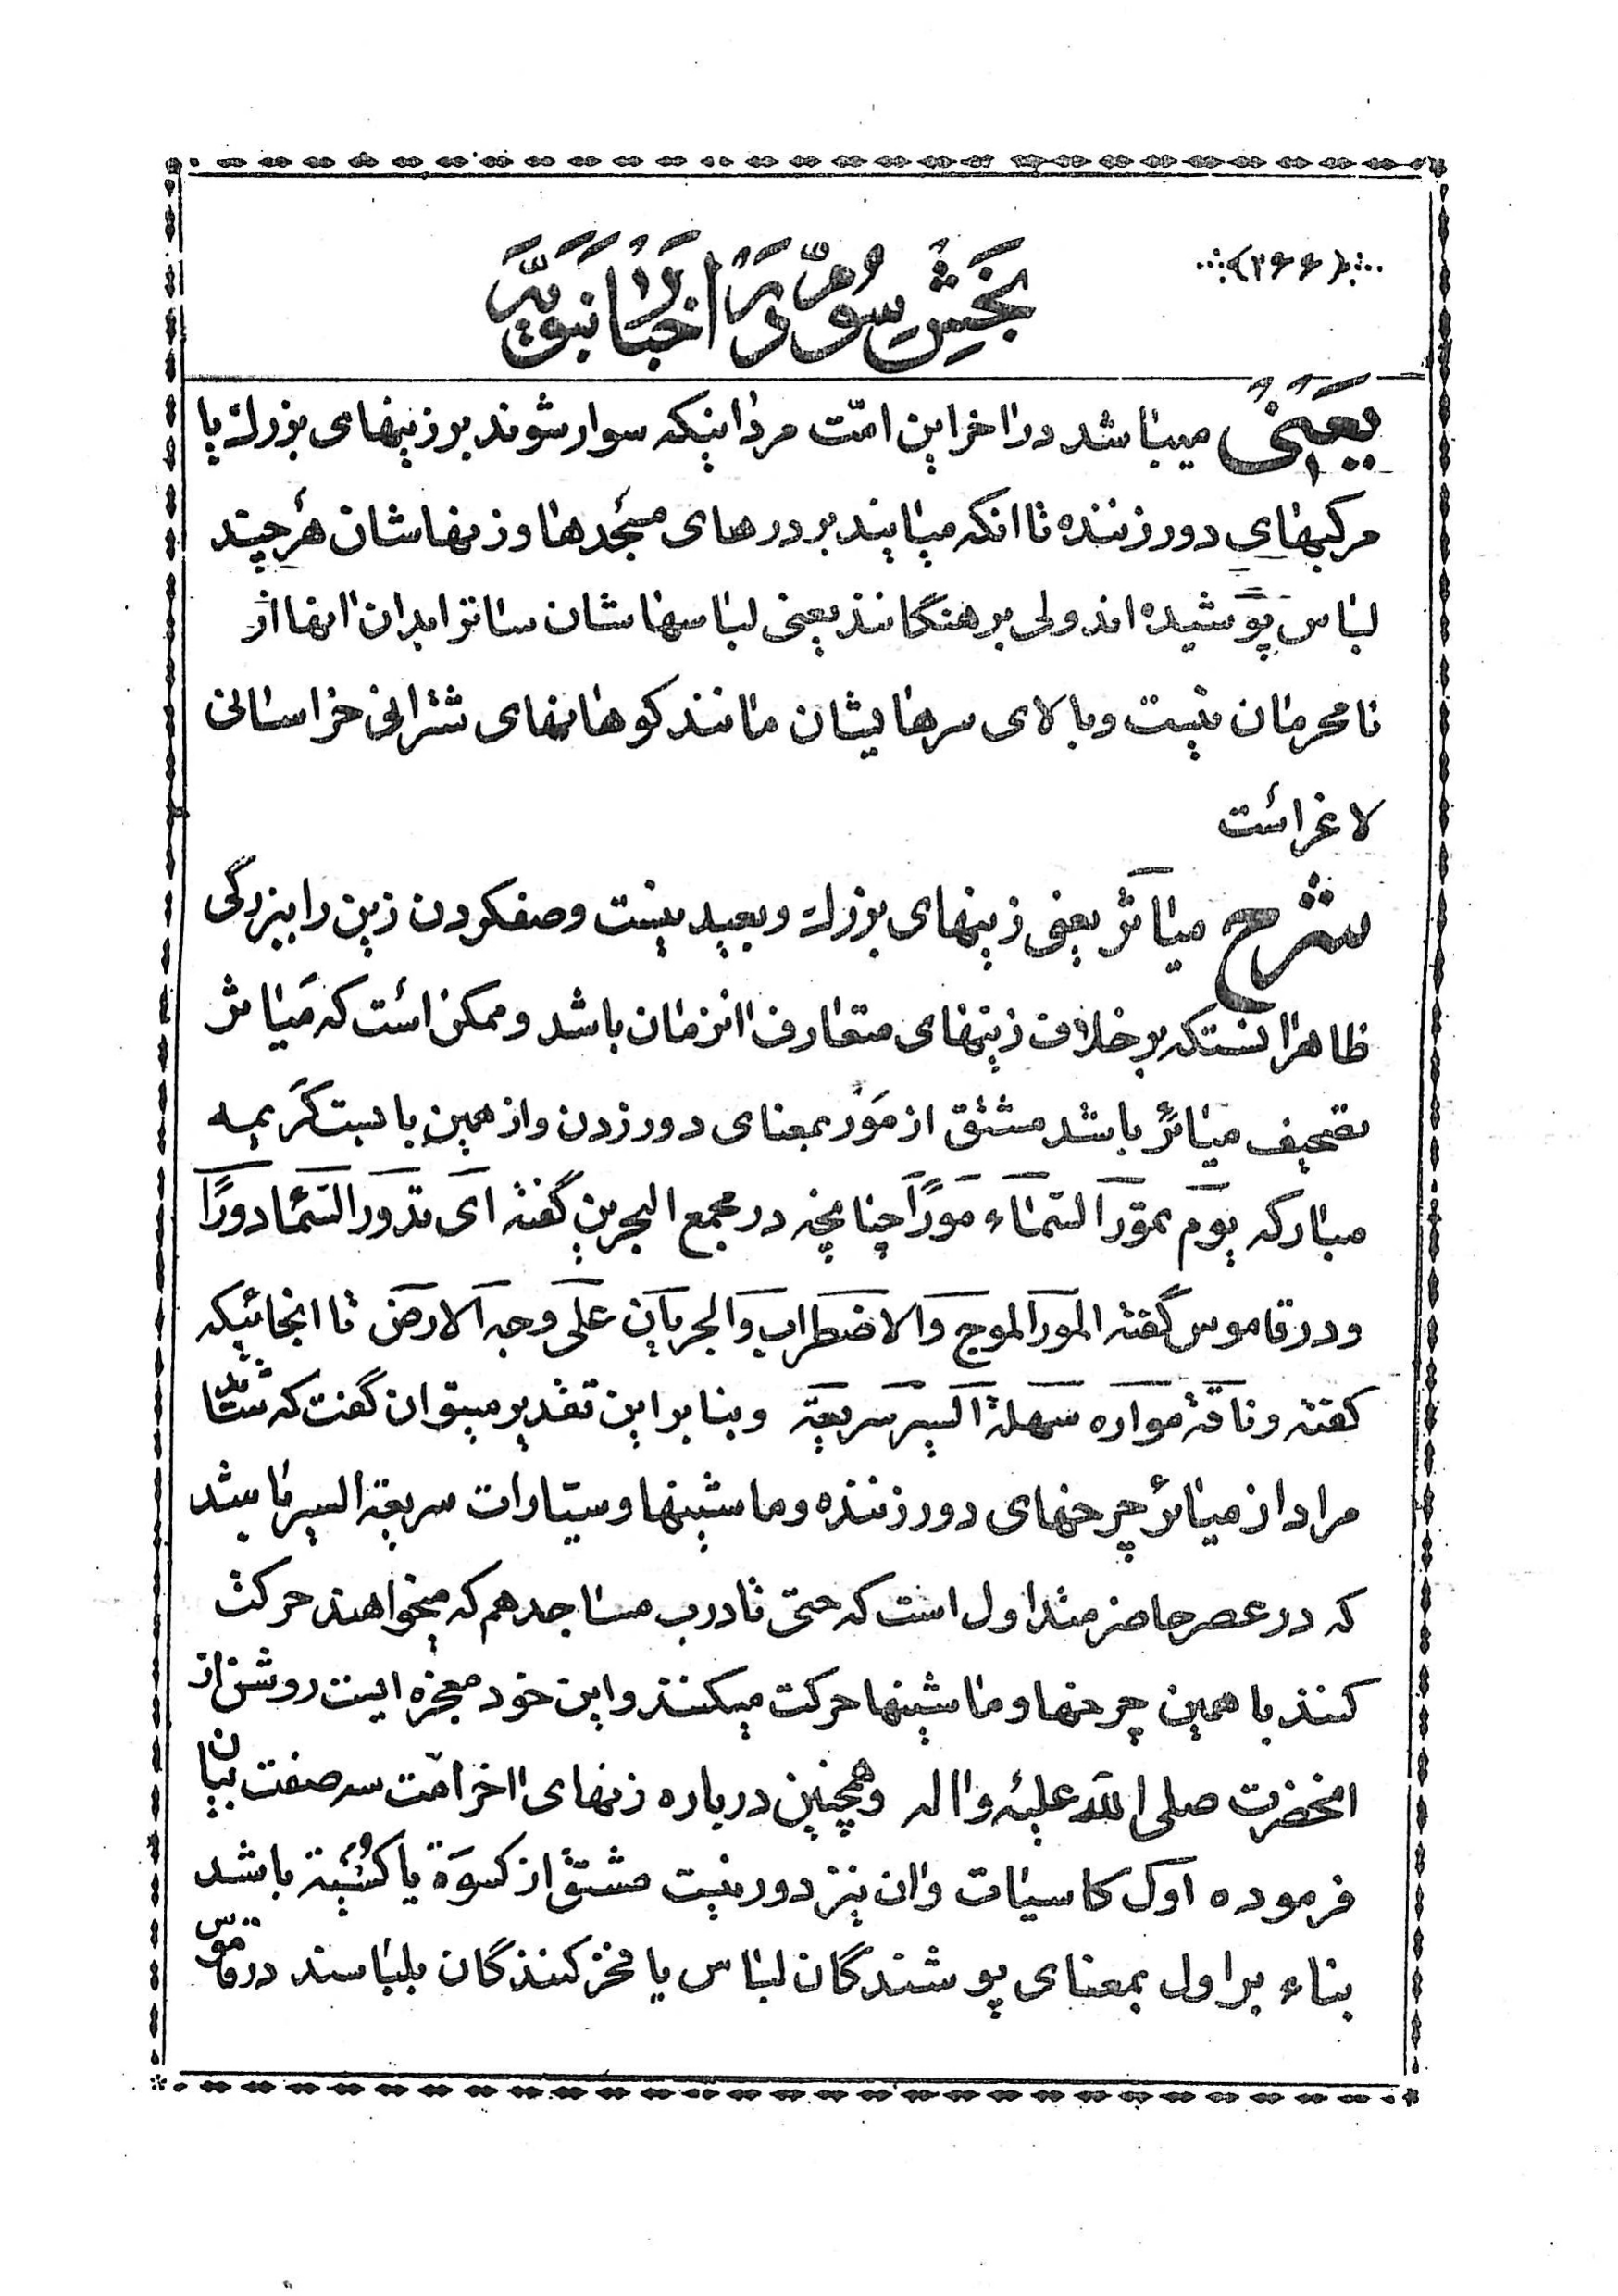 (۲۶۶)
بخش سوم در اخبار نبویه
یعنی میباشد در اخر این امّت مردانیکه سوار شوند بر زینهای بزرك یا
مرکبهای دور زننده تا انکه میایند بر درهای مسجدها و زنهاشان هر چند
لباس پوشیده اند ولی برهنگانند یعنی لباسهاشان ساتر ابدان انها از
نامحرمان نیست و بالای سرهایشان مانند کوهانهای شترانی خراسانی
لاغر است
شرح میاثر یعنی زینهای بزرك و بعید نیست وصفکردن زین را ببزرگی
ظاهرا انستکه بر خلاف زینهای متعارف انزمان باشد و ممکن است که میاثر
تصحیف میائر باشد مشتق از مَوْر بمعنای دور زدن و از همین بابست کریمه
مبارکه یوم تمور السّماء مورًا چنانچه در مجمع البحرین گفته ای تدور السّماء دورًا
و در قاموس گفته المور الموج والاضطراب والجریان علی وجه الارض تا انجائیکه
گفته و ناقة مواره سهلة السیر سریعة و بنا بر این تقدیر میتوان گفت که شاید
مراد از میائر چرخهای دور زننده و ماشینها و سیّارات سریعة السیر باشد
که در عصر حاضر متداول است که حتی تا درب مساجد هم که میخواهند حرکت
کنند با همین چرخها و ماشینها حرکت میکنند و این خود معجزه ایست روشن از
انحضرت صلی الله علیه و اله و همچنین درباره زنهای اخر امّت سه صفت بیان
فرموده اول کاسیات و ان نیز دور نیست مشتق از کسوة یا کُسْیَة باشد
بناء بر اول بمعنای پوشندگان لباس یا فخر کنندگان بلباسند در قاموس